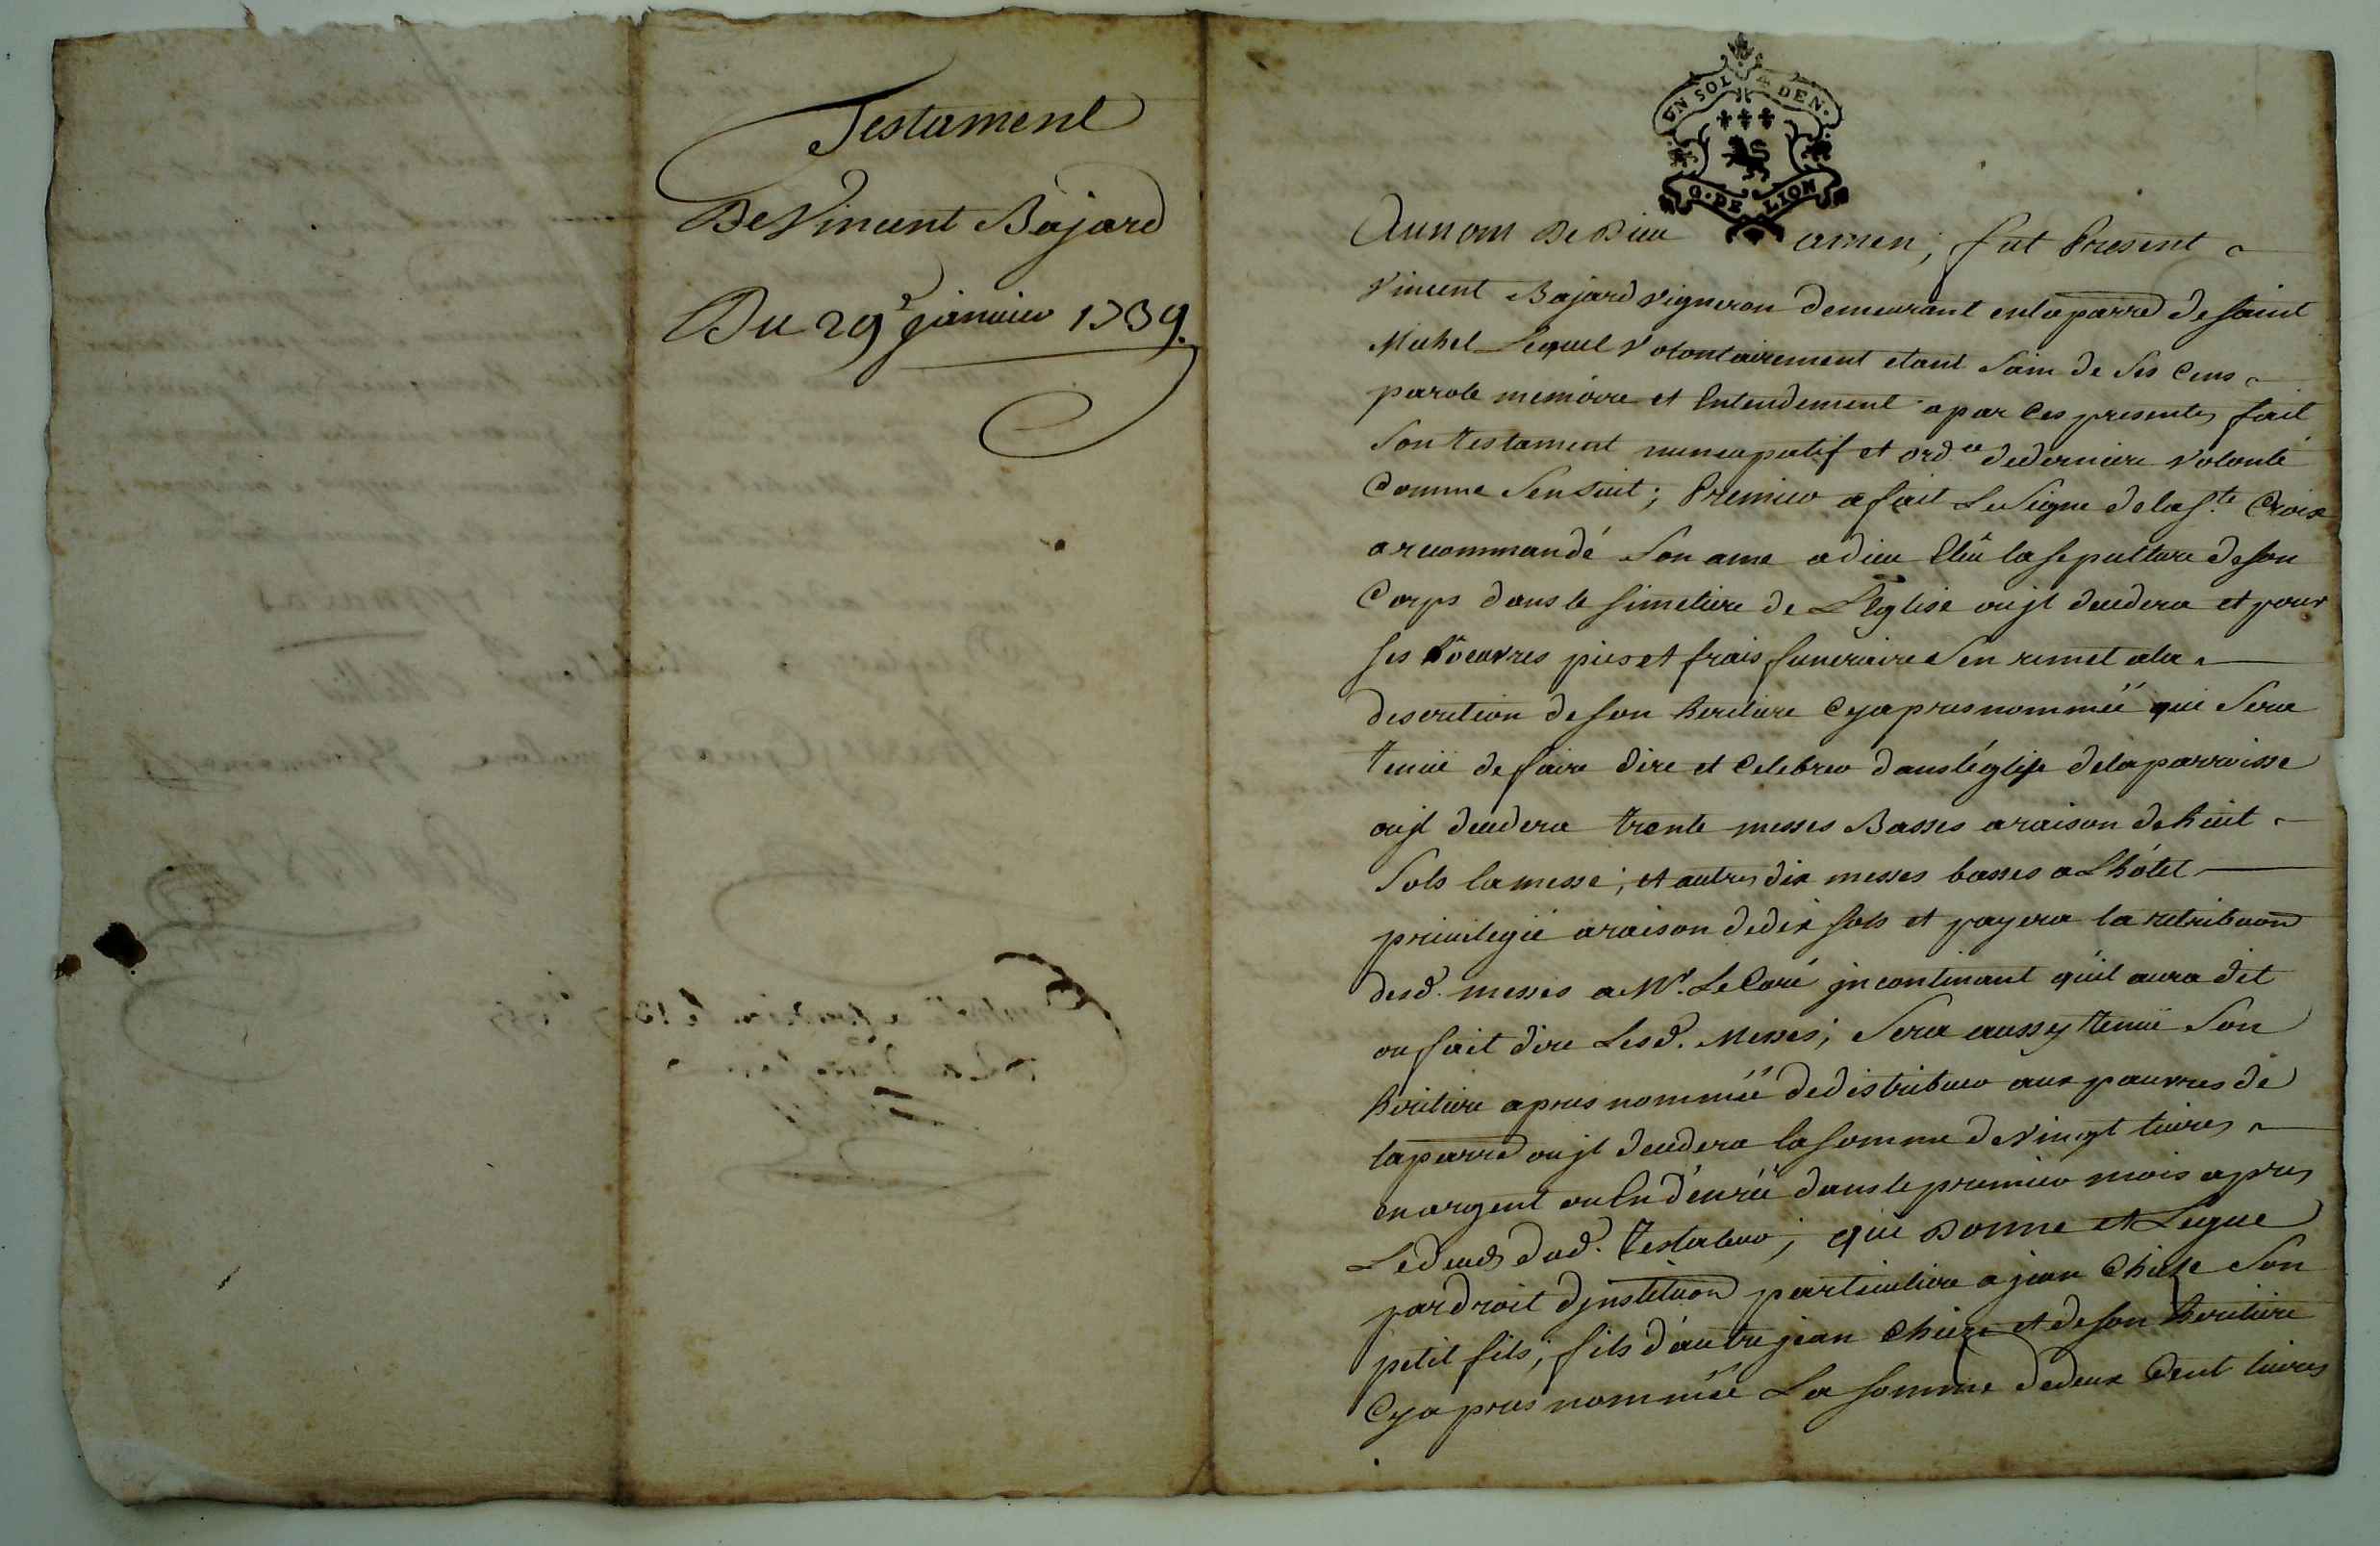 Testament
De Vincent Bajard
Du 29e janvier 1739.
UN SOL 4 DEN.
G. DE LION
Au nom De Dieu amen; fut Present
Vincent Bajard vigneron demeurant en la parre de saint
Michel Lequel Volontairement etant Sain de Ses Cens
parole memoire et Entendement a par Ces presentes fait
Son testament nuncupatif et ordce de derniere volonté
Comme Sen Suit; Premier a fait Le Signe de la Ste Croix
a recommandé Son ame a dieu Eleu la sepulture de son
Corps dans le simetiere de L'Eglise ou jl decedera et pour
ses oeuvres pies et frais funeraire Sen remet a la
descretion de son heritiere Cyapres nommée qui Sera
tenüe de faire dire et Celebrer dans l'église de la parroisse
ou jl decedera trente messes Basses a raison de huit
Sols la messe; et autres dix messes basses a L'hôtel
privilegié a raison de dix sols et payera la retribuon
desd. messes a Mr. Le Curé jncontinant qu'il aura dit
ou fait dire Lesd. Messes; Sera aussy tenüe Son
heritiere apres nommée de distribuer aux pauvres de
la parre ou jl decedera la somme de vingt livres
en argent ou En dénrée dans le premier mois apres
Le deces dud. Testateur; qui Donne et Legue
par droit d'jnstituon particuliere a jean Chieze Son
petit fils; fils d'autre jean Chieze et de son heritiere
Cyapres nommée La somme de deux Cent livres